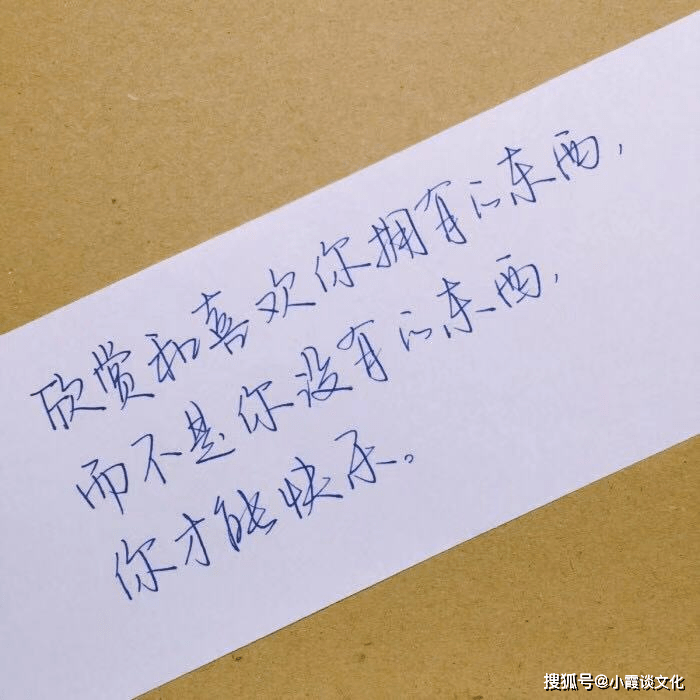 欣赏和喜欢你拥有的东西,
而不是你没有的东西,
你才能快乐。
搜狐号@小霞谈文化